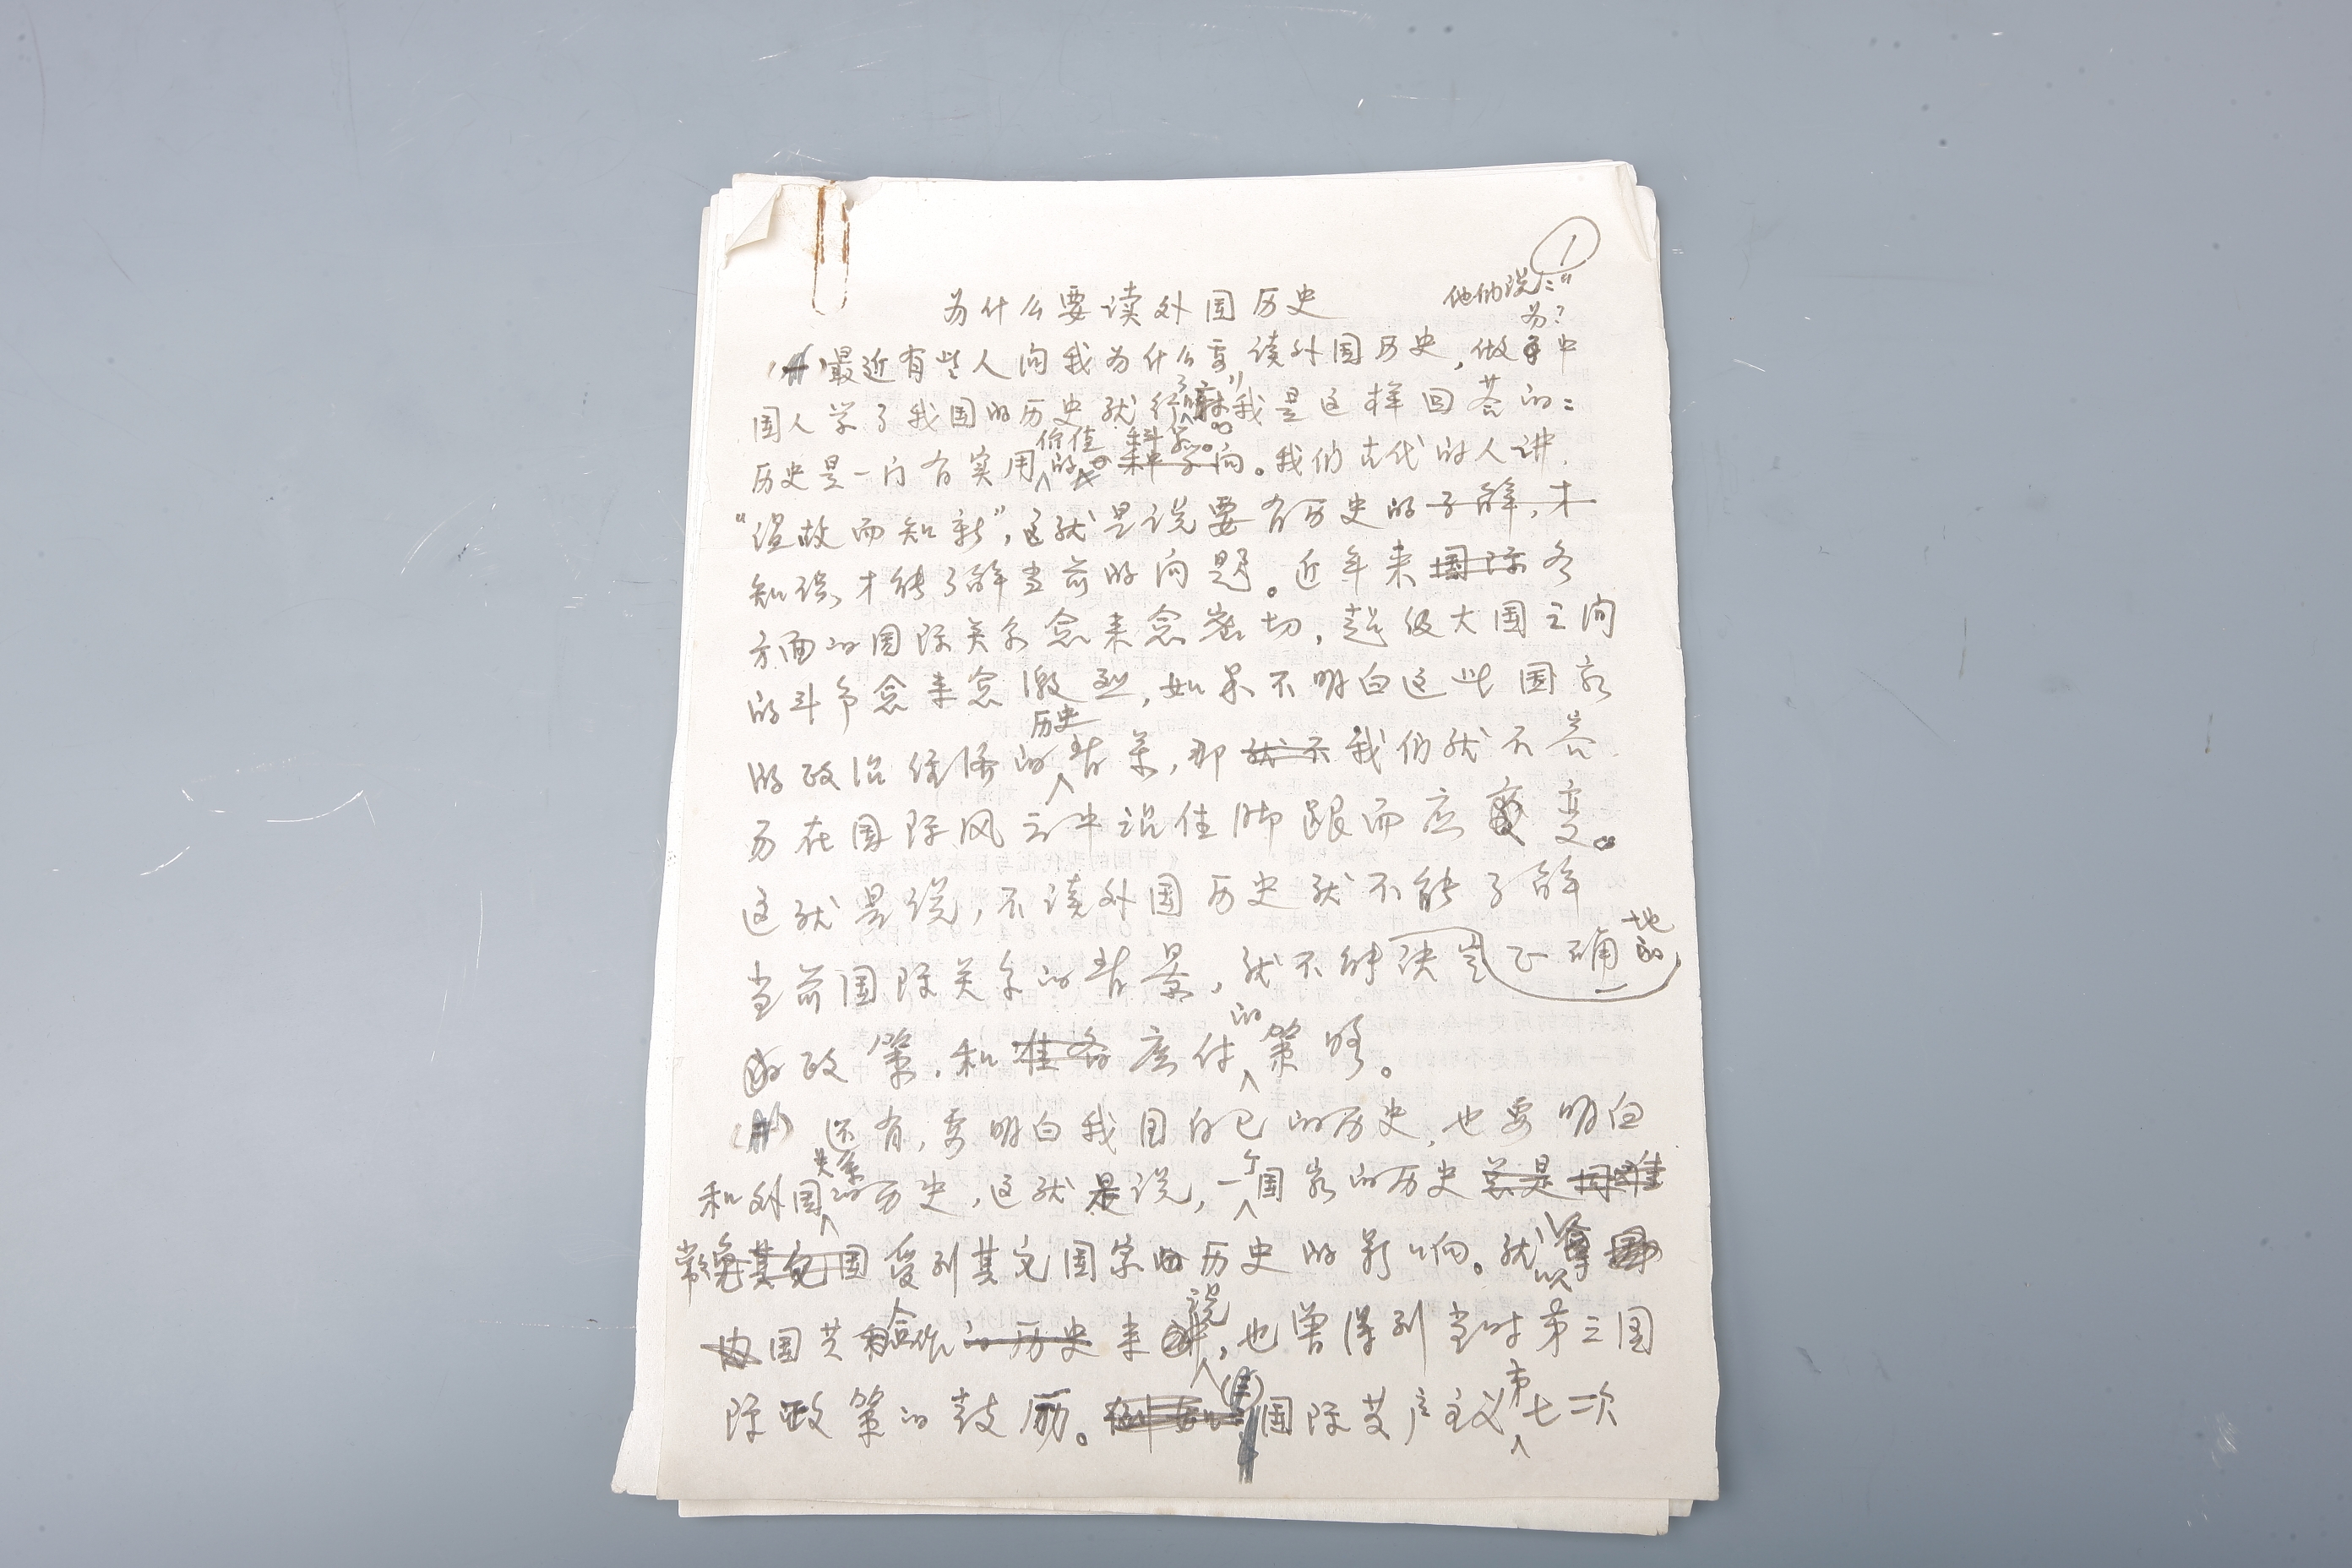 1
为什么要读外国历史
他们说："
为?
最近有些人问我为什么要读外国历史,做中
国人学了我国的历史就行了嘛"我是这样回答的:
价值 科学
历史是一门有实用的学问。我们古代的人讲
"温故而知新",这就是说要有历史的了解,才
知识,才能了解当前的问题。近年来国际各
方面的国际关系愈来愈密切,超级大国之间
的斗争愈来愈激烈,如果不明白这些国家
历史
的政治经济的背景,那就不我们就不容
易在国际风云中站住脚跟而应变。
这就是说,不读外国历史就不能了解
地
当前国际关系的背景,就不能决定正确的
的
的政策,和准备应付策略。
还有,要明白我国自己的历史,也要明白
关系 个
和外国的历史,这就是说,一国家的历史总是困难
常免其它国受到其它国家的历史的影响。就
以
合 说
国共合作的历史来讲,也曾得到当时第三国
第
际政策的鼓励。例如国际共产主义七次